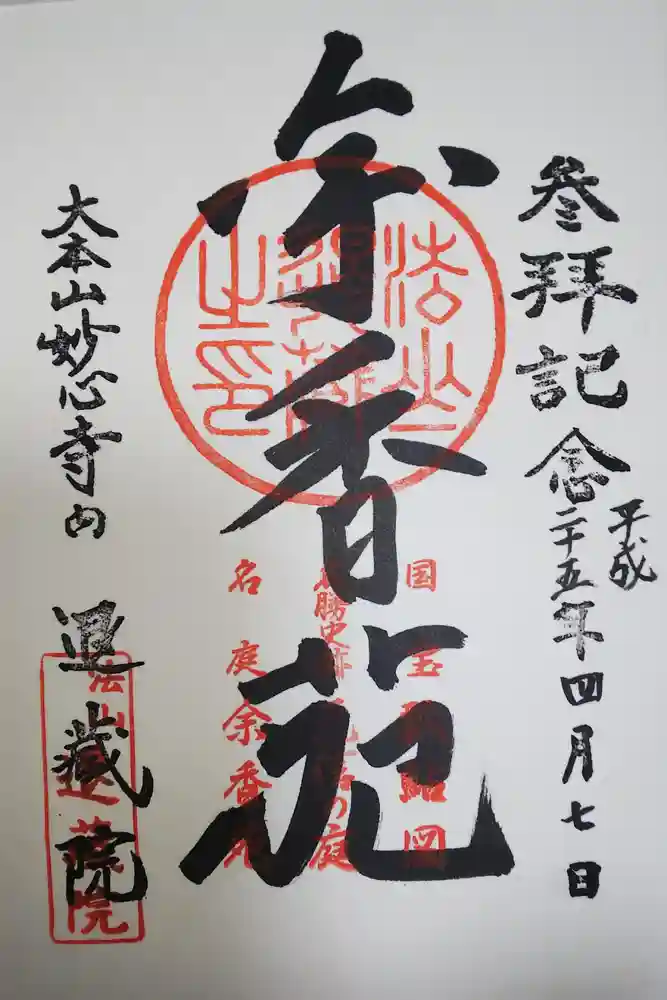 参拝記念
平成
二十五年四月七日
余香苑
国宝瓢鮎図
名勝史跡元信の庭
名庭余香苑
大本山妙心寺内
退蔵院